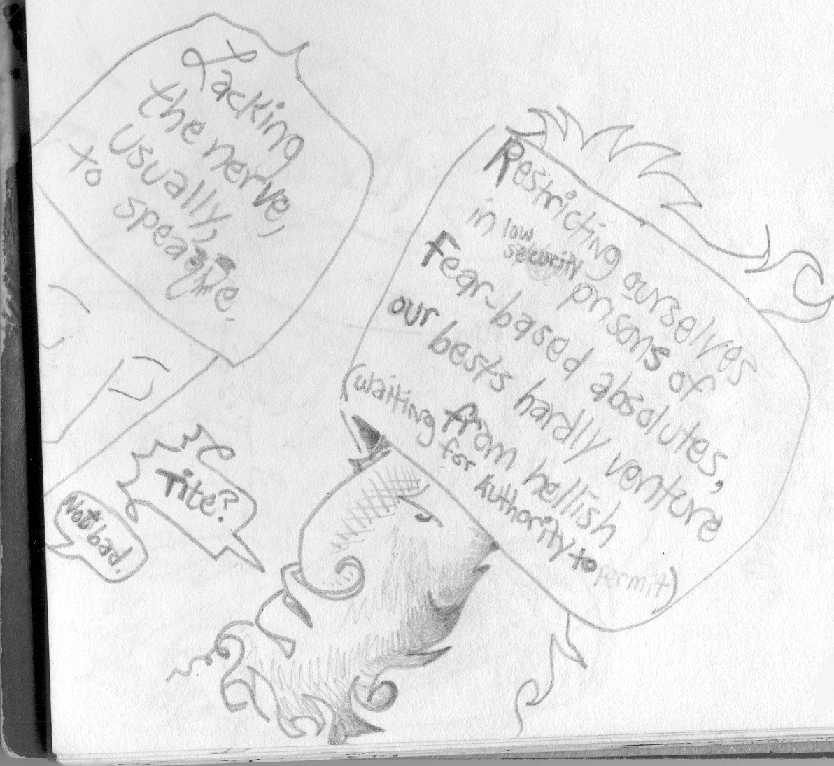 Lacking
the nerve,
usually,
to
Restricting ourselves
in low security prisons of
Fear-based absolutes,
our bests hardly venture
from hellish
(waiting for Authority to permit)
Tite?
Not bad.